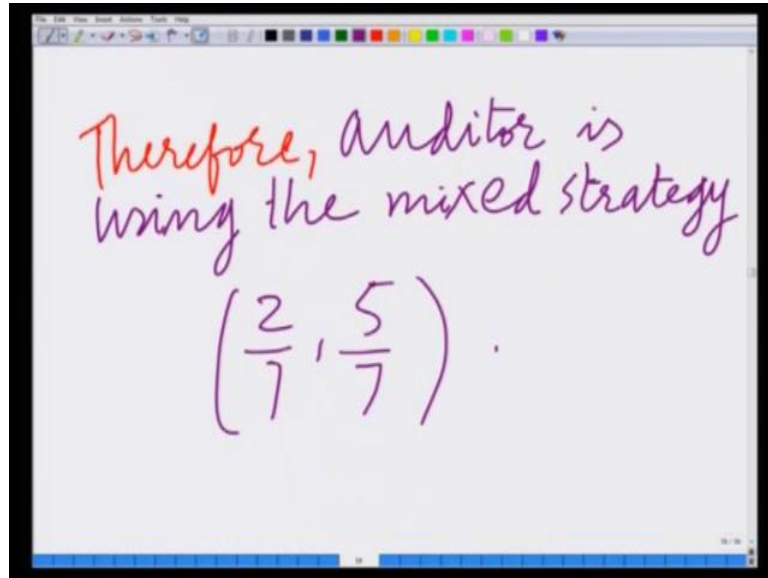 File Edit View Insert Actions Tools Help
Therefore, auditor is
using the mixed strategy
(2/7, 5/7).